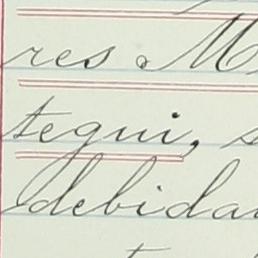 res M
tegui, s
debida